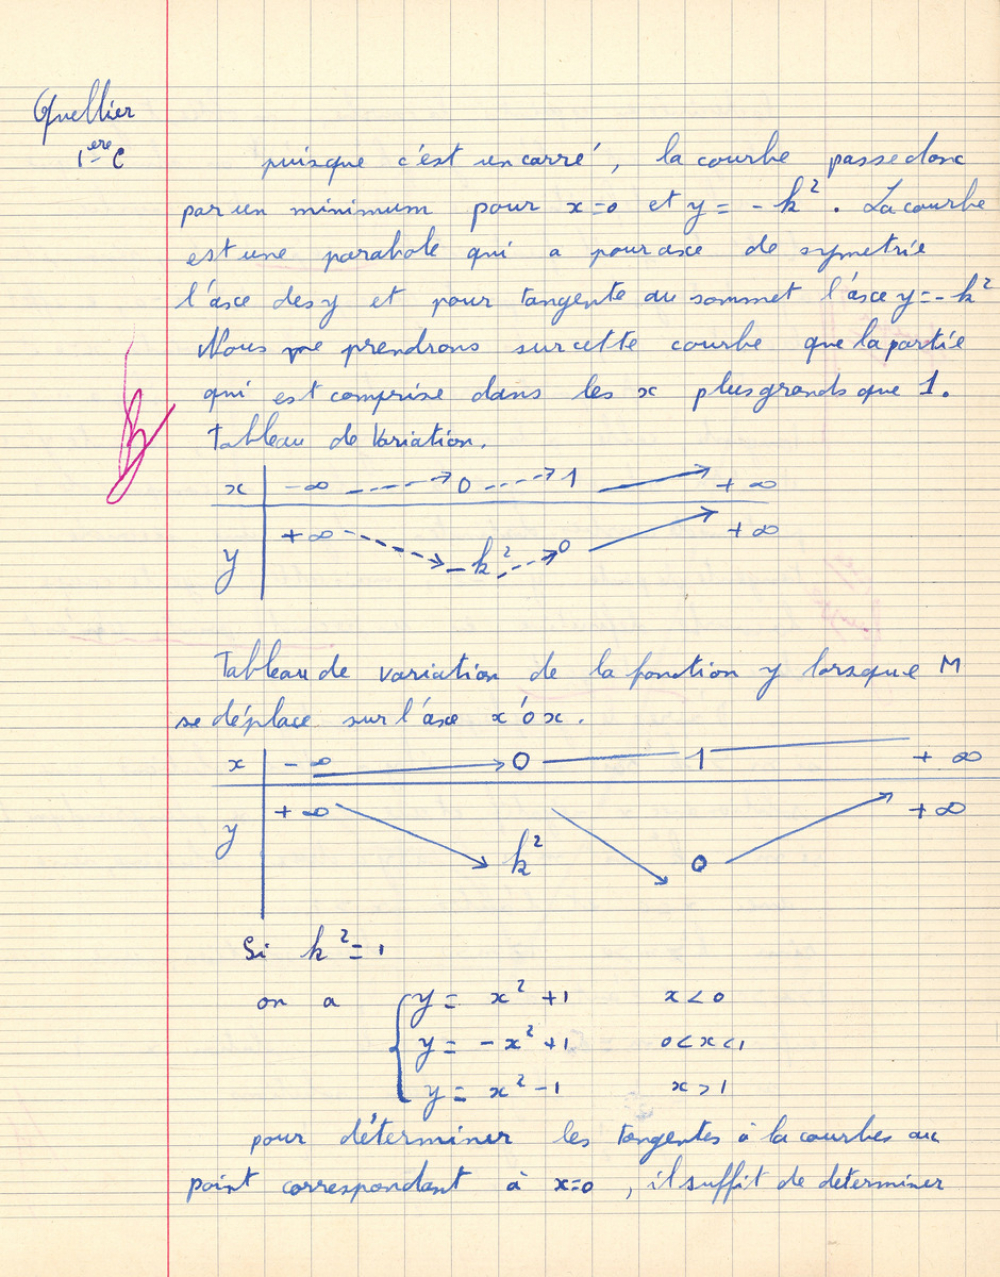 Quellier
1ère C
puisque c'est un carré, la courbe passe donc
par un minimum pour x=0 et y = -k². La courbe
est une parabole qui a pour axe de symetrie
l'axe des y et pour tangente au sommet l'axe y=-k²
Nous ne prendrons sur cette courbe que la partie
qui est comprise dans les x plus grands que 1.
Tableau de Variation.
x -∞ 0 1 +∞
y +∞ -k² 0 +∞
Tableau de variation de la fonction y lorsque M
se déplace sur l'axe x'ox.
x -∞ 0 1 +∞
y +∞ k² 0 +∞
Si k²=1
on a { y = x² +1 x<0
y = -x² +1 0<x<1
y = x² -1 x>1
pour déterminer les tangentes à la courbes au
point correspondant à x=0, il suffit de determiner